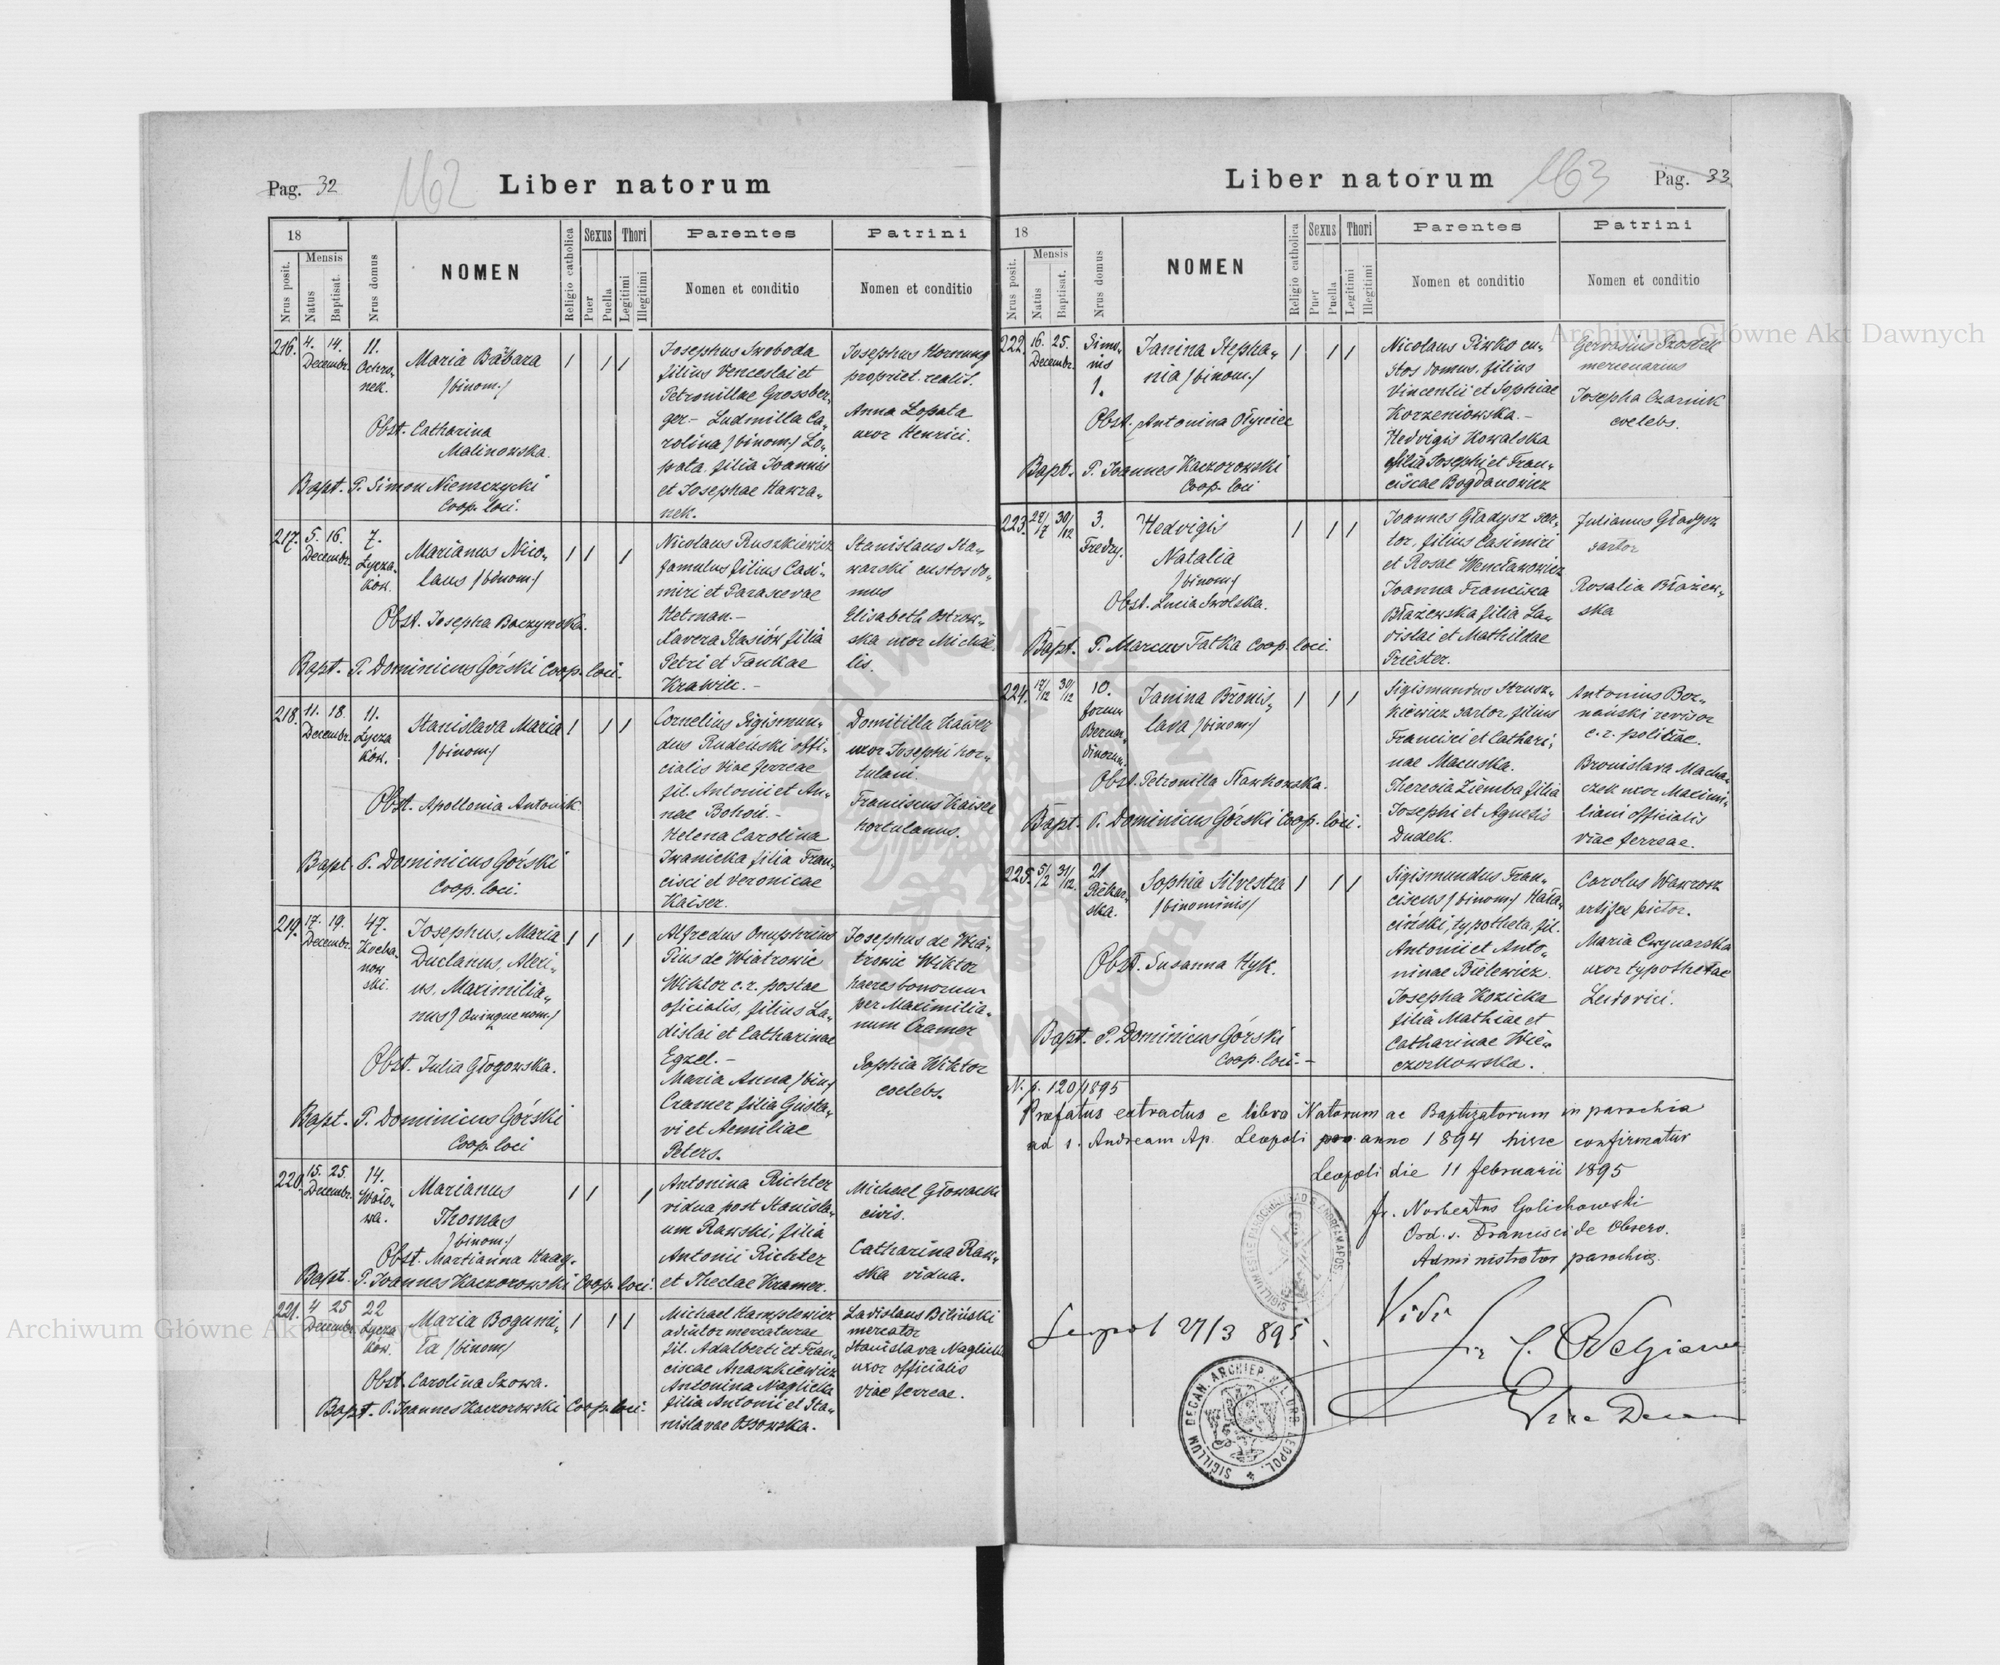 Pag. 32
162
Liber natorum
18
Nrus posit.
Mensis
Natus
Baptisat.
Nrus domus
NOMEN
Religio catholica
Sexus
Puer
Puella
Thori
Legitimi
Illegitimi
Parentes
Nomen et conditio
Patrini
Nomen et conditio
216.
4. 14.
Decembr.
11.
Ochro-
nek.
Maria Bābara
/binom./
Obst. Catharina
Malinowska.
Bapt. P. Simon Niemczycki
Coop. loci.
Josephus Swoboda
filius Venceslai et
Petronillae Grossber-
ger - Ludmilla Ca-
rolina /binom./ Lo-
pata filia Joannis
et Josephae Hawra-
nek.
Josephus Hornung
propriet. realit.
Anna Lopata
uxor Henrici.
217.
5. 16.
Decembr.
7.
Łycza-
ków.
Marianus Nico-
laus /binom/
Obst. Josepha Baczynska.
Bapt. P. Dominicus Górski Coop. loci.
Nicolaus Ruszkiewicz
famulus filius Casi-
miri et Parascevae
Hetman. -
Xavera Stasiów filia
Petri et Fankae
Krawiec. -
Stanislaus Sta-
warski custos do-
mus
Elisabeth Ostrow-
ska uxor Michae-
lis.
218.
11. 18.
Decembr.
11.
Łycza
ków.
Stanislava Maria
/binom/
Obst. Apollonia Antonik
Bapt. P. Dominicus Górski
Coop. loci.
Cornelius Sigismun-
dus Rudeński offi-
cialis viae ferreae
fil. Antonii et An-
nae Bohoń. -
Helena Carolina
Iwanicka filia Fran-
cisci et Veronicae
Kaiser.
Domitilla Kaiser
uxor Josephi hor-
tulani.
Franciscus Kaiser
hortulanus.
219.
17. 19.
Decembr.
47.
Kocha-
now
ski.
Josephus, Maria
Duclanus, Alexi-
us, Maximilia-
nus / Quinquenom/
Obst. Julia Głogowska.
Bapt. P. Dominicus Górski
Coop. loci
Alfredus Onuphrius
Pius de Wiatrowic
Wiktor c.r. postae
oficialis, filius La-
dislai et Catharinae
Egzel. -
Maria Anna /bin/
Cramer filia Gusta-
vi et Aemiliae
Peters.
Josephus de Wia-
trowic Wiktor
haeres bonorum
per Maximilia-
num Cramer
Sophia Wiktor
coelebs.
220.
15. 25.
Decembr.
14.
Wało-
wa.
Marianus
Thomas
/binom./
Obst. Martianna Haag.
Bapt. P. Joannes Kaczorowski Coop. loci.
Antonina Richter
vidua post Stanisla-
um Rawski, filia
Antonii Richter
et Theclae Kramer.
Michael Głowacki
civis.
Catharina Raw-
ska vidua.
221.
4 25
Decembr.
22
Łycza
ków.
Maria Bogumi-
ła /binom/
Obst. Carolina Szowa.
Bapt. P. Joannes Kaczorowski Coop. loci.
Michael Kamplewicz
adiutor mercaturae
fil. Adalberti et Fran-
ciscae Anaszkiewicz
Antonina Naglicka
filia Antonii et Sta-
nislavae Ossowska.
Ladislaus Biliński
mercator
Stanislava Naglicka
uxor officialis
viae ferreae.
Liber natorum
163
Pag. 33
18
Nrus posit.
Mensis
Natus
Baptisat.
Nrus domus
NOMEN
Religio catholica
Sexus
Puer
Puella
Thori
Legitimi
Illegitimi
Parentes
Nomen et conditio
Patrini
Nomen et conditio
222.
16. 25.
Decembr.
Simo-
nis
1.
Janina Stepha-
nia /binom./
Obst. Antonina Ołyniec
Bapt. P. Joannes Kaczorowski
Coop. loci
Nicolaus Piwko cu-
stos domus, filius
Vincentii et Sophiae
Korzeniowska. -
Hedvigis Kowalska
filia Josephi et Fran-
ciscae Bogdanowicz
Gervasius
mercenarius
Josepha Czarnik
coelebs.
223.
30/12
3.
Fredry.
Hedvigis
Natalia
/binom/
Obst. Lucia Swolska.
Bapt. P. Marcus Fatka Coop. loci.
Joannes Gładysz sar-
tor, filius Casimiri
et Rosae Wencławowicz
Joanna Francisca
Błażewska filia La-
dislai et Mathildae
Priester.
Julianus Gładysz
sartor
Rosalia Błażew-
ska
224.
17/12 30/12
10.
forum
Bernar-
dinorum.
Janina Bronis-
lava /binom/
Obst. Petronilla Sławkowska.
Bapt. P. Dominicus Górski Coop. loci.
Sigismundus Strusz-
kiewicz sartor, filius
Francisci et Cathari-
nae Macuska.
Theresia Ziemba filia
Josephi et Agnetis
Dudek.
Antonius Boz-
nański revisor
c.r. politiae.
Bronislava Macha-
czek uxor Maximi-
liani officialis
viae ferreae.
225.
5/2 31/12.
21
Piekar-
ska.
Sophia Silvestra
/binominis/
Obst. Susanna Hyk.
Bapt. P. Dominicus Górski
Coop. loci. -
Sigismundus Fran-
ciscus /binom/ Hała-
ciński, typotheta, fil.
Antonii et Anto-
ninae Bielewicz.
Josepha Kozicka
filia Mathiae et
Catharinae Wie-
czorkowska.
Carolus Wawrosz
artifex pictor.
Maria Cwynarska
uxor typothetae
Ludovici.
N. p. 120/1895
Praefatus extractus e libro Natorum ac Baptizatorum in parochia
ad s. Andream Ap. Leopoli pro anno 1894 hisce confirmatur
Leopoli die 11 februarii 1895
fr. Norbertus Golichowski
Ord. s. Francisci de Observ.
Administrator parochiae.
Vidi
Leopol 27/3 895
Vice Decan
SIGILLUM DECAN. ARCHIEP. R. L. URB. LEOPOL.
Archiwum Główne Akt Dawnych
Archiwum Główne Akt Dawnych